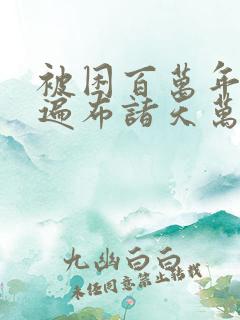 被困百萬年
遍布諸天萬
九幽白白
未经同意禁止转载